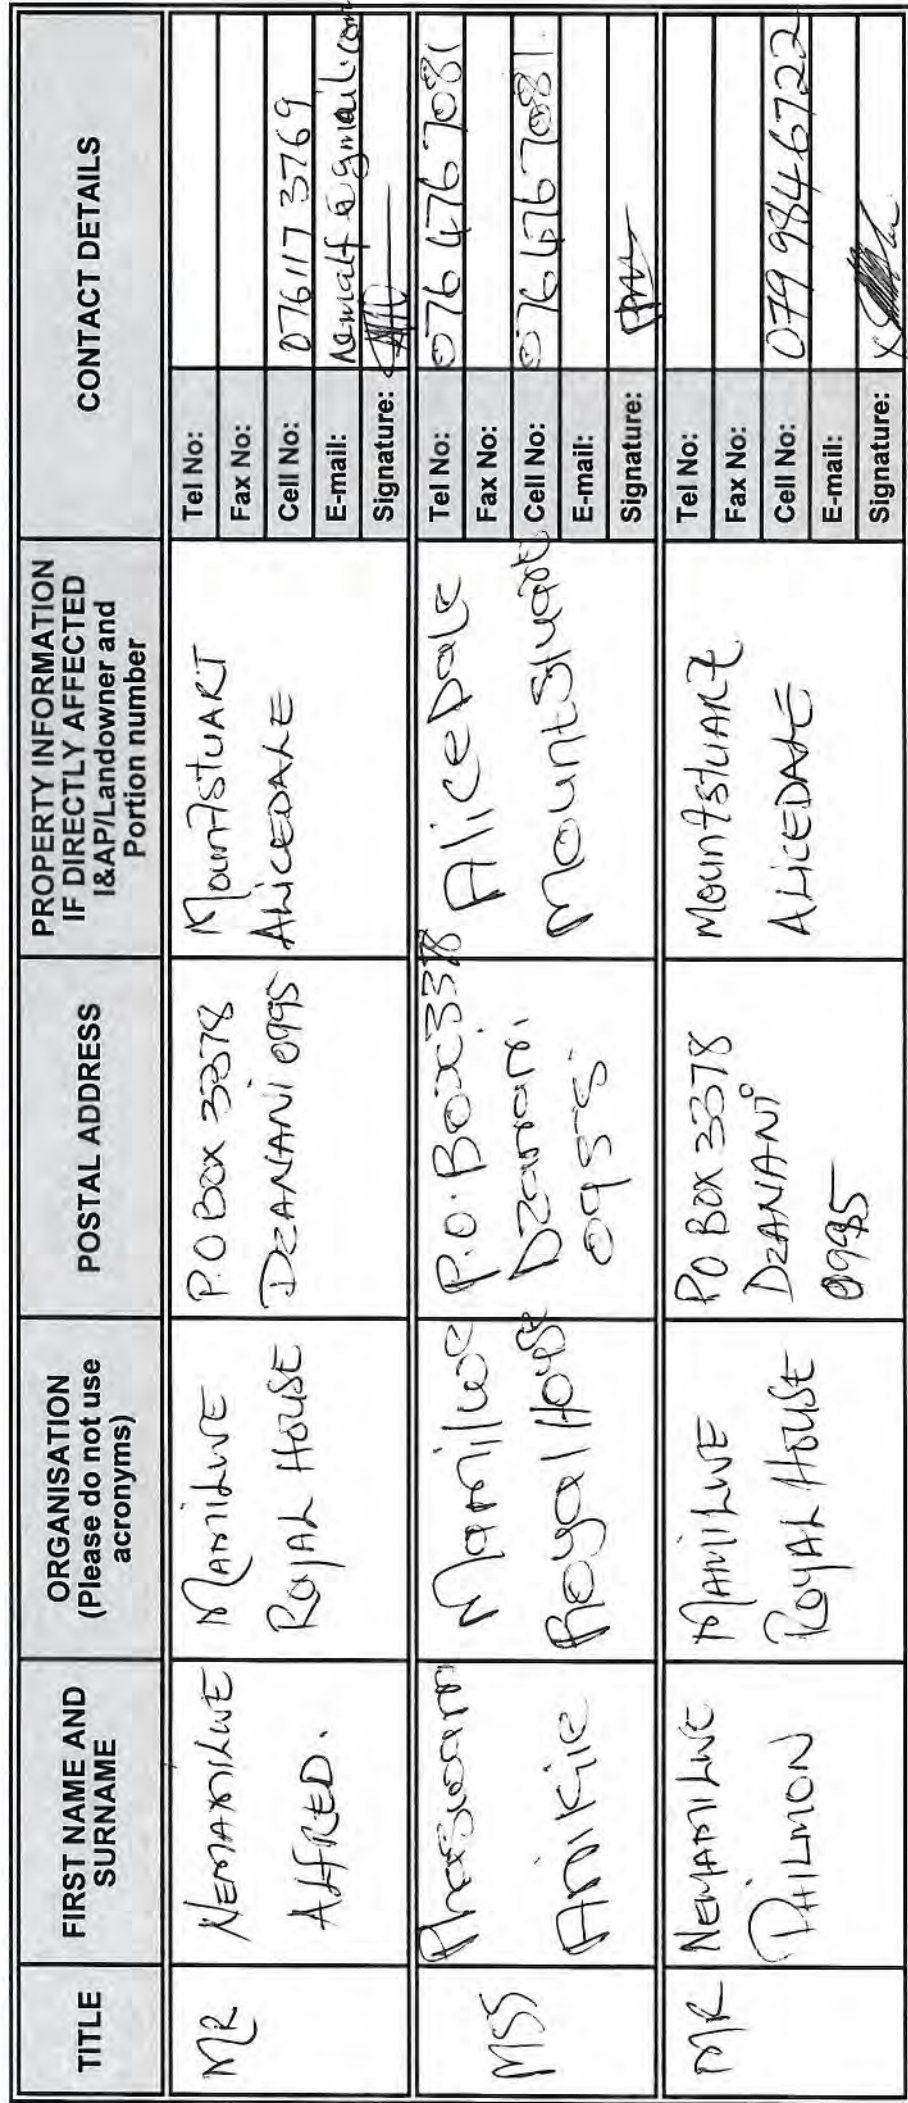 TITLE
FIRST NAME AND
SURNAME
ORGANISATION
(Please do not use
acronyms)
POSTAL ADDRESS
PROPERTY INFORMATION
IF DIRECTLY AFFECTED
I&AP/Landowner and
Portion number
CONTACT DETAILS
MR
NEMAMILWE
ALFRED.
MAMILWE
ROYAL HOUSE
P.O BOX 3378
DZANANI 0995
MOUNTSTUART
ALICEDALE
Tel No:
Fax No:
Cell No: 076 117 3769
E-mail: @gmail.com
Signature:
MSS
Anikie
Mamilwe
Royal House
P.O. Box 3378
Dzanani
0955
Alice Dale
MountStuart
Tel No: 076 476 7081
Fax No:
Cell No: 076 476 7081
E-mail:
Signature:
MR
NEMAMILWE
PHILMON
MAMILWE
ROYAL HOUSE
PO BOX 3378
DZANANI
0995
MOUNTSTUART
ALICEDALE
Tel No:
Fax No:
Cell No: 079 984 6722
E-mail:
Signature: